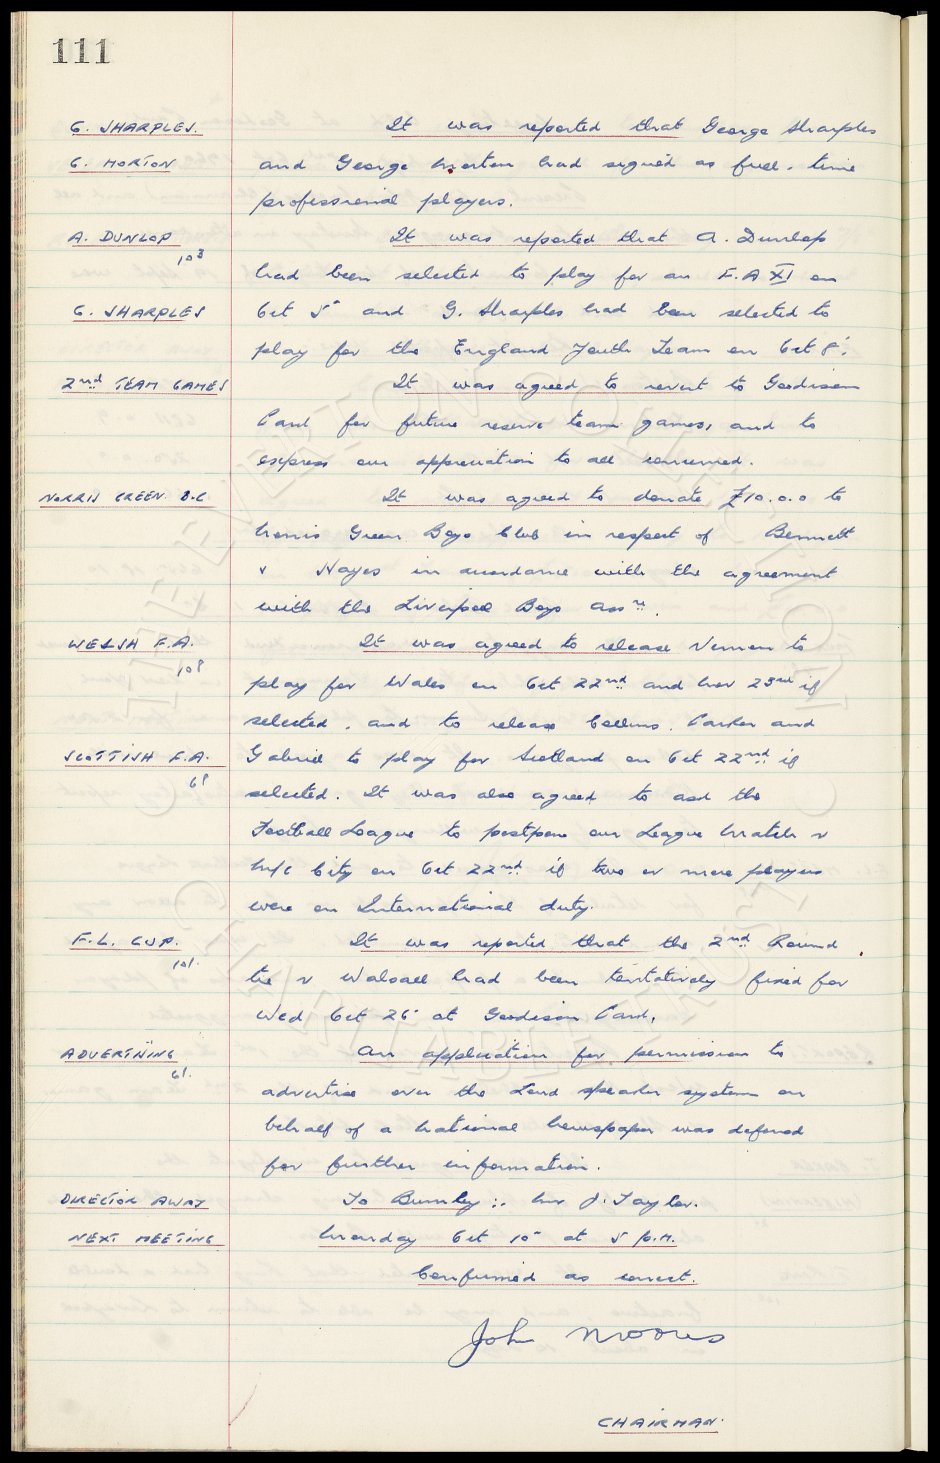 111
G. SHARPLES. It was reported that George Sharples
G. MORTON and George Morton had signed as full-time
professional players.
A. DUNLOP It was reported that A. Dunlop
103 had been selected to play for an F.A XI on
G. SHARPLES Oct 5th and G. Sharples had been selected to
play for the England Youth Team on Oct 8th.
2nd TEAM GAMES It was agreed to revert to Goodison
Park for future reserve team games, and to
express our appreciation to all concerned.
NORRIS GREEN B.C It was agreed to donate £10.0.0 to
Norris Green Boys Club in respect of Bennett
& Hayes in accordance with the agreement
with the Liverpool Boys Assn.
WELSH F.A. It was agreed to release Vernon to
108 play for Wales on Oct 22nd and Nov 23rd if
selected, and to release Collins, Parker and
SCOTTISH F.A. Gabriel to play for Scotland on Oct 22nd if
61 selected. It was also agreed to ask the
Football League to postpone our League Match v
M/c City on Oct 22nd if two or more players
were on International duty.
F.L. CUP. It was reported that the 2nd Round
101. tie v Walsall had been tentatively fixed for
Wed Oct 26th at Goodison Park.
ADVERTISING An application for permission to
61. advertise over the Loud speaker system on
behalf of a National Newspaper was deferred
for further information.
DIRECTOR AWAY To Burnley:. Mr J. Taylor.
NEXT MEETING Monday Oct 10th at 5 p.m.
Confirmed as correct.
John Moores
CHAIRMAN.
THE EVERTON COLLECTION
CHARITABLE TRUST